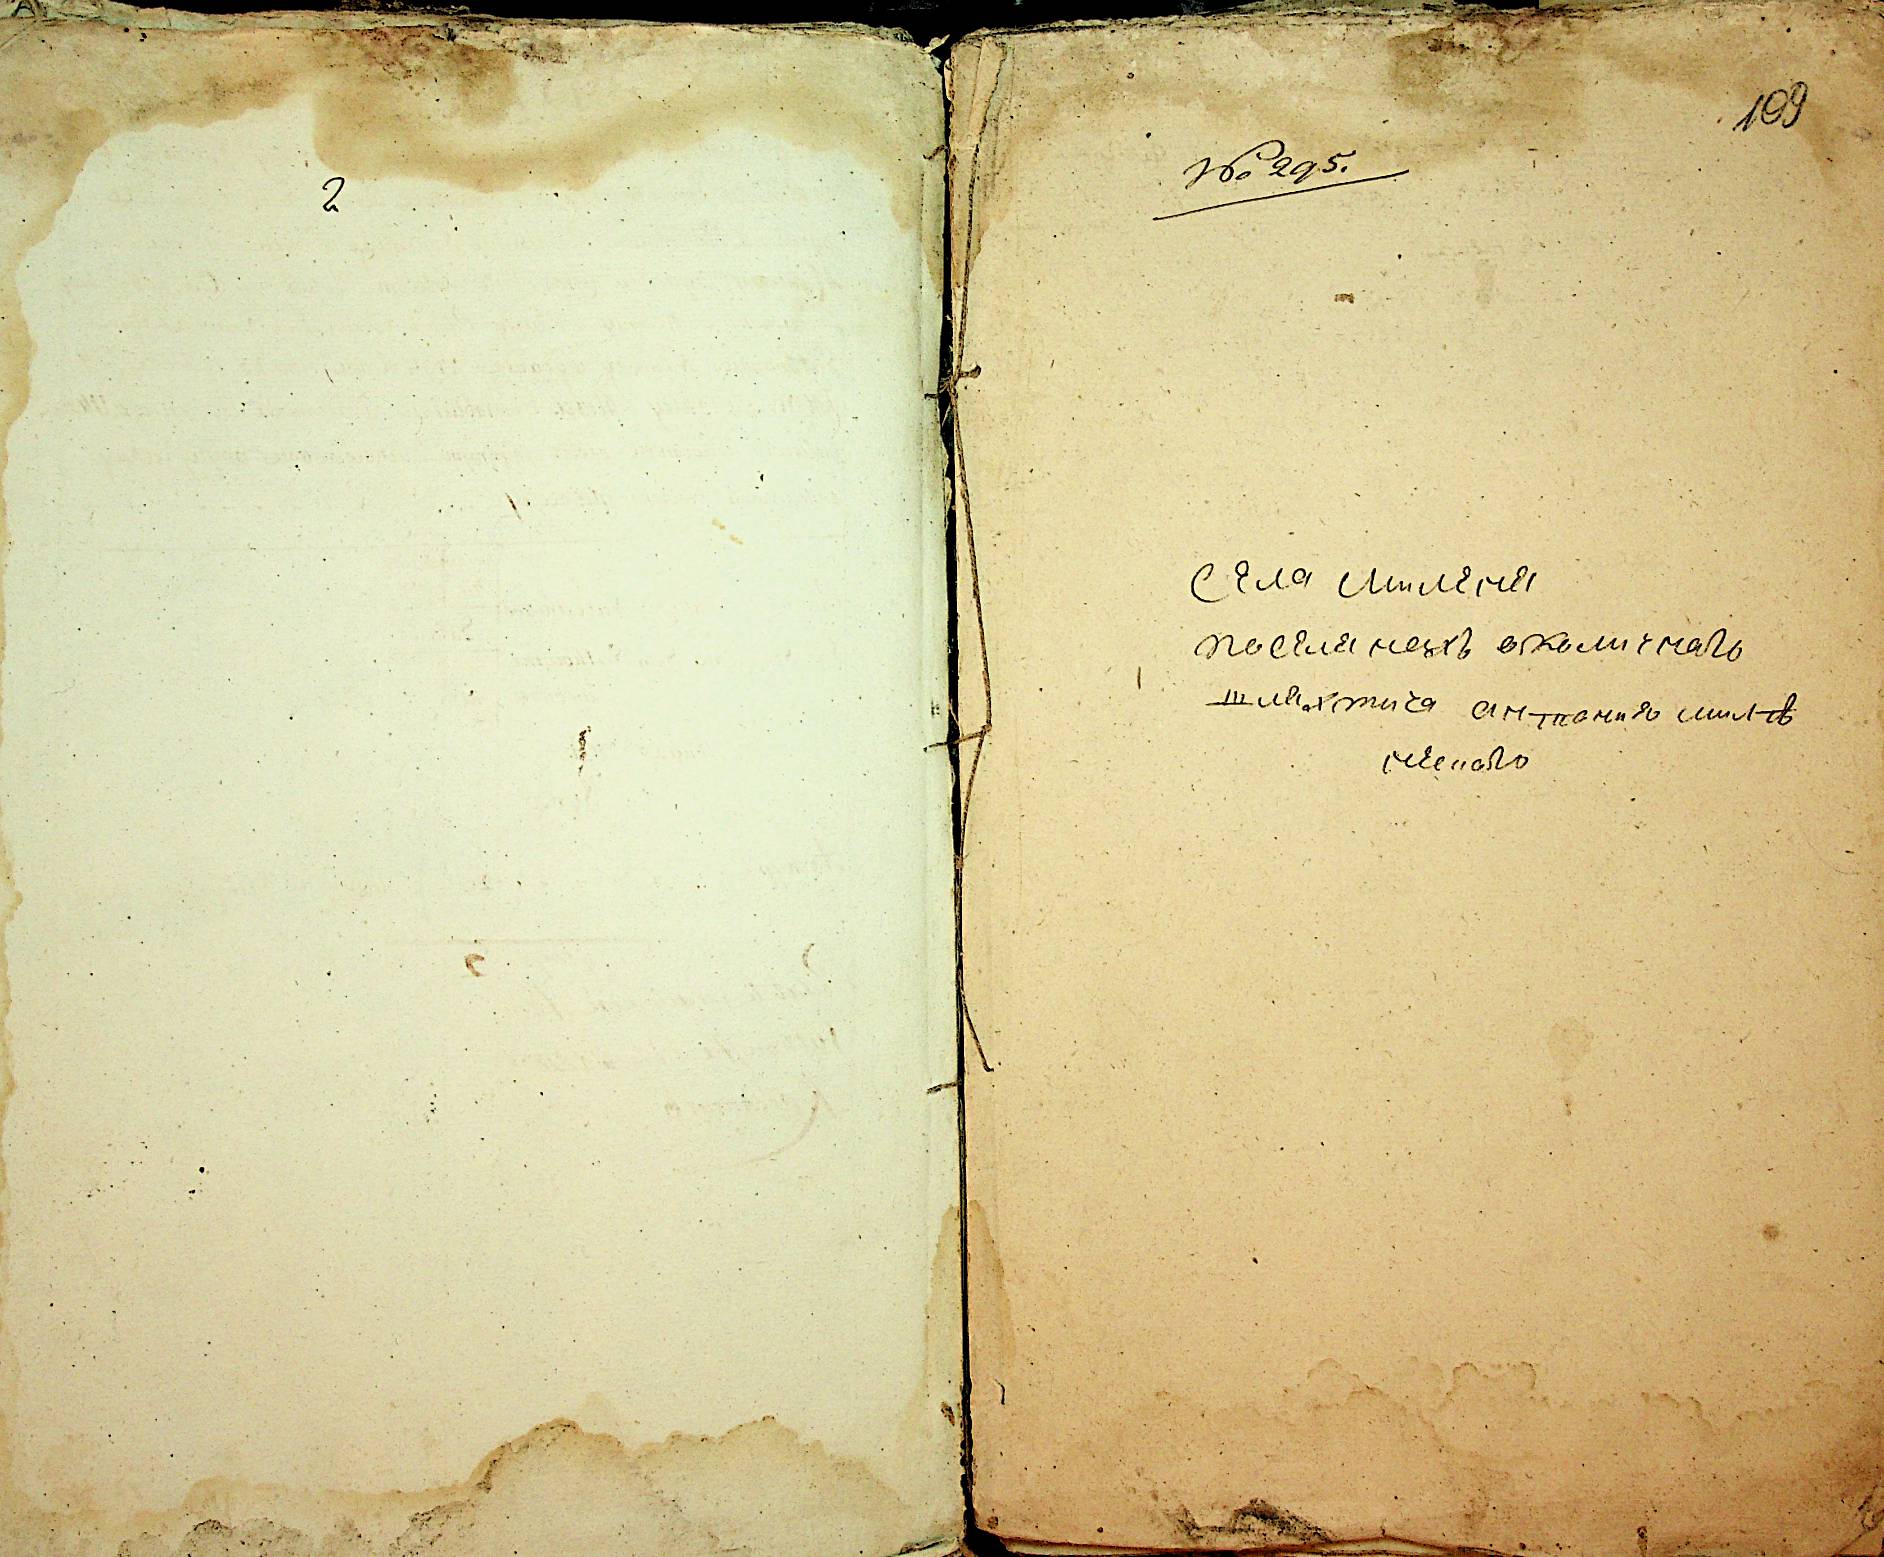 2
109
№ 295.
Села Милені
поселенахъ околичнаго
шляхтича антония милѣ
ненаго